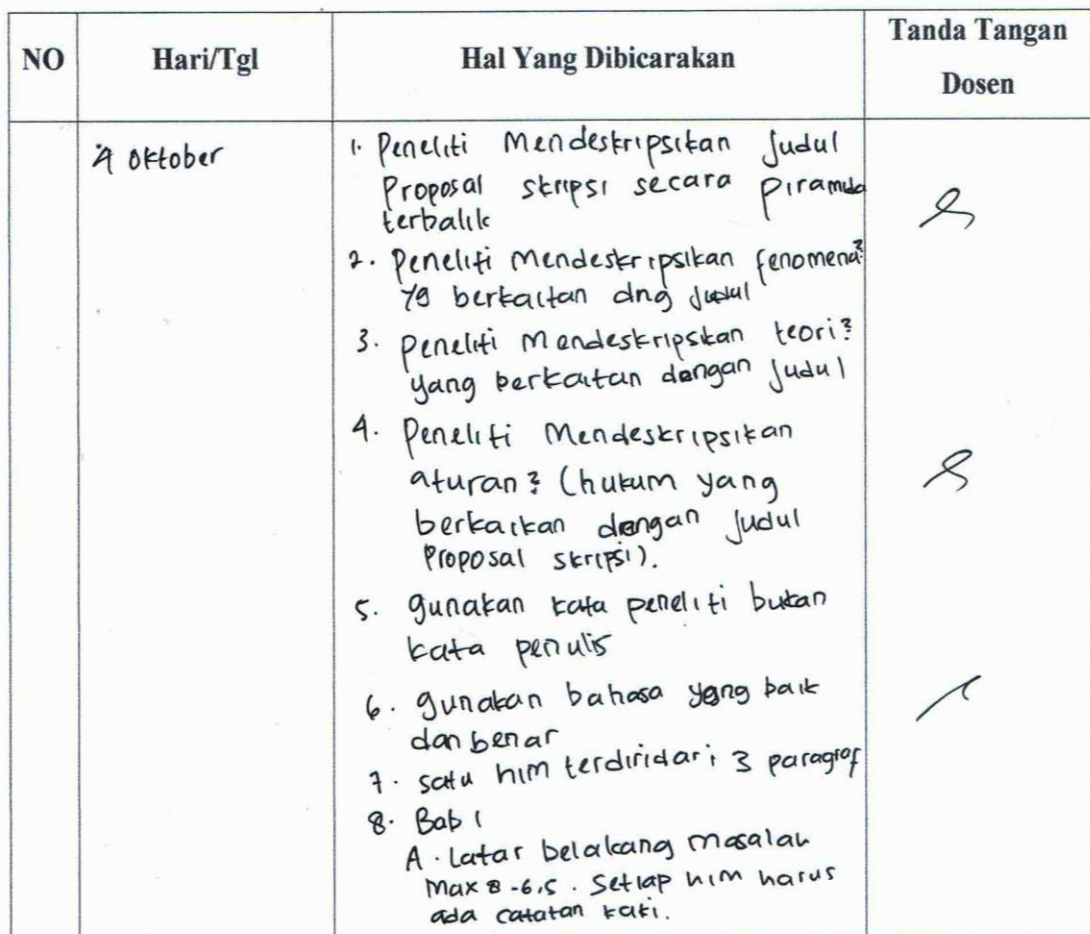 NO
Hari/Tgl
Hal Yang Dibicarakan
Tanda Tangan
Dosen
4 Oktober
1. Peneliti Mendeskripsikan Judul
Proposal skripsi secara piramida
terbalik
2. Peneliti Mendeskripsikan fenomena²
yg berkaitan dng judul
3. peneliti Mendeskripsikan teori²
yang berkaitan dengan judul
4. Peneliti Mendeskripsikan
aturan² (hukum yang
berkaikan dengan judul
Proposal skripsi).
5. gunakan kata peneliti bukan
kata penulis
6. gunakan bahasa yang baik
dan benar
7. satu hlm terdiri dari 3 paragraf
8. Bab 1
A. Latar belakang masalah
Max 8-6,5. Setiap hlm harus
ada catatan kaki.